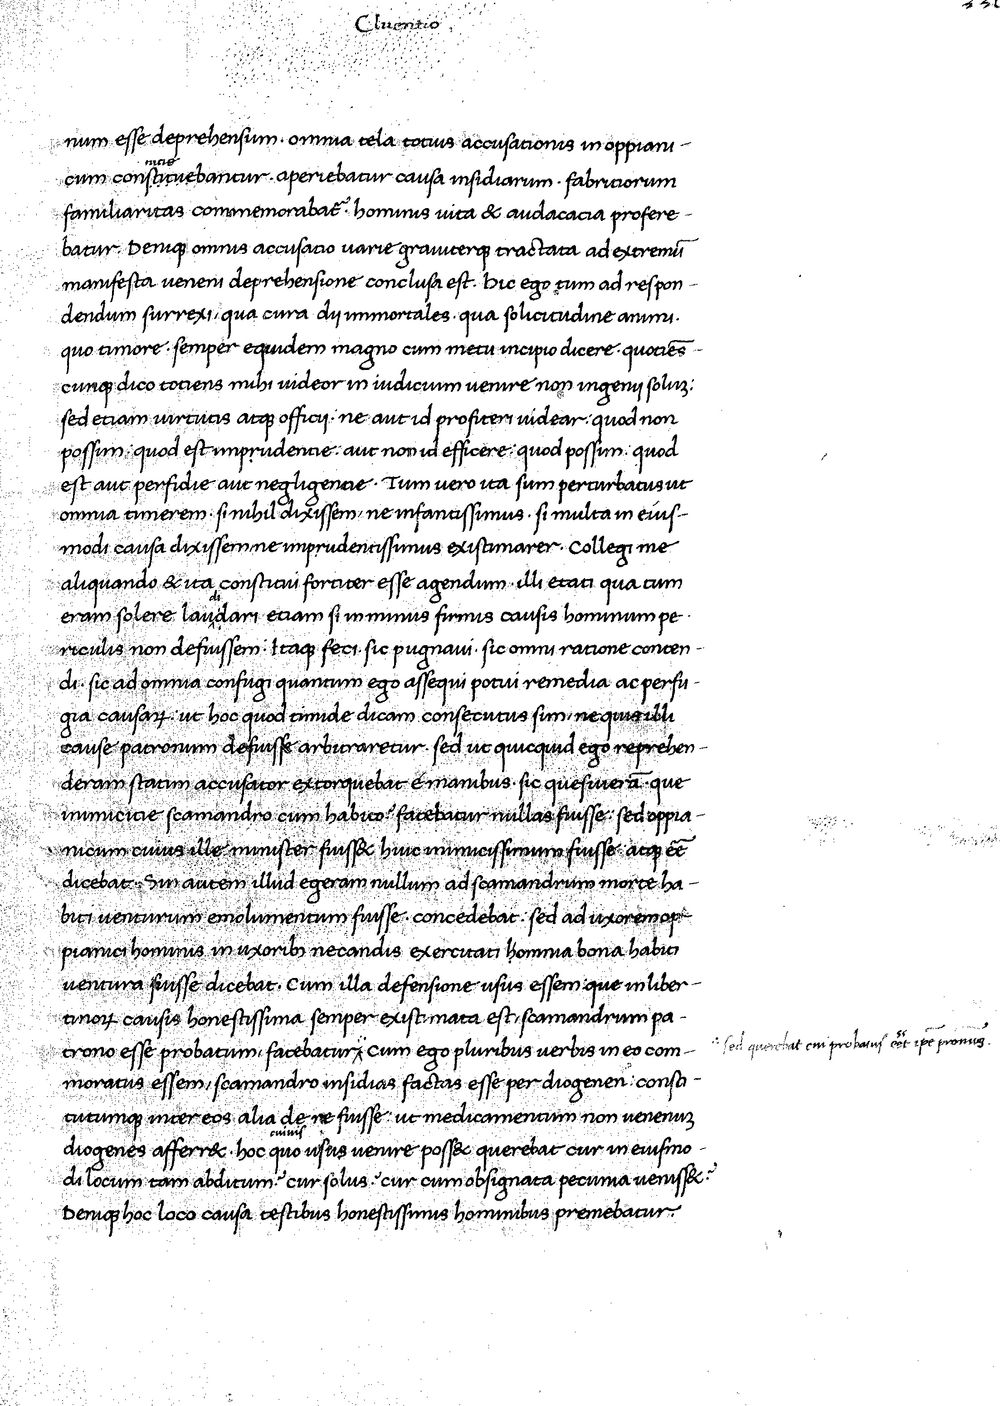 Cluentio
num esse deprehensum. omnia tela totius accusationis in oppiani-
cum constituebantur. aperiebatur causa insidiarum. fabritiorum
familiaritas commemorabat̄. hominis uita & audacacia profere-
batur. Deniqꝫ omnis accusatio uarie grauiterqꝫ tractata ad extremū
manifesta ueneni deprehensione conclusa est. hic ego tum ad respon-
dendum surrexi, qua cura dii immortales. qua solicitudine animi.
quo timore. semper equidem magno cum metu incipio dicere. quotiēs-
cunqꝫ dico totiens mihi uideor in iudicium uenire non ingenij soluꝫ:
sed etiam uirtutis atqꝫ officij. ne aut id profiteri uidear. quod non
possim. quod est imprudentie. aut non id efficere. quod possim. quod
est aut perfidie aut negligentie. Tum uero ita sum perturbatus ut
omnia timerem. si nihil dixissem, ne infantissimus. si multa in eius-
modi causa dixissem, ne imprudentissimus existimarer. Collegi me
aliquando & ita constitui fortiter esse agendum. illi etati qua tum
eram solere laudari etiam si in minus firmis causis hominum pe-
riculis non defuissem. Itaqꝫ feci. sic pugnaui. sic omni ratione conten-
di. sic ad omnia confugi quantum ego assequi potui remedia ac perfu-
gia causaꝝ. ut hoc quod timide dicam consecutus sim, ne quis illi
cause patronum defuisse arbitraretur. sed ut quicquid ego reprehen-
deram statim accusator extorquebat e manibus. sic quesiuerā. que
inimicitie scamandro cum habito? fatebatur nullas fuisse. sed oppia-
nicum cuius ille minister fuiss& huic inimicissimum fuisse. atqꝫ eē
dicebat. Sin autem illud egeram nullum ad scamandrum morte ha-
biti uenturum emolumentum fuisse. concedebat. sed ad uxorem op-
pianici hominis in uxoribꝫ necandis exercitati homnia bona habiti
uentura fuisse dicebat. Cum illa defensione usus essem que in liber-
tinoꝝ causis honestissima semper existimata est, scamandrum pa-
trono esse probatum, fatebatur. Cum ego pluribus uerbis in eo com-
sed querebat cui probatus eēt ipē pronus.
moratus essem, scamandro insidias factas esse per diogenen. consti-
tutumqꝫ inter eos alia de re fuisse. ut medicamentum non uenenuꝫ
diogenes afferr&. hoc quo usus uenire poss& querebat cur in eiusmo-
di locum tam abditum? cur solus? cur cum obsignata pecunia ueniss&?
Deniqꝫ hoc loco causa testibus honestissimis hominibus premebatur.